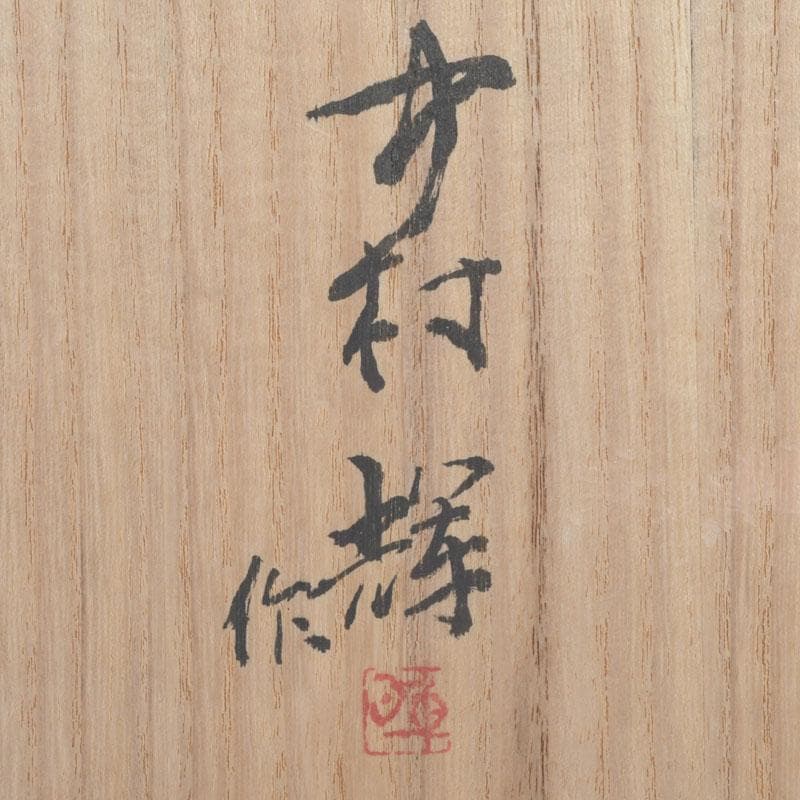 中村
輝
作
暉